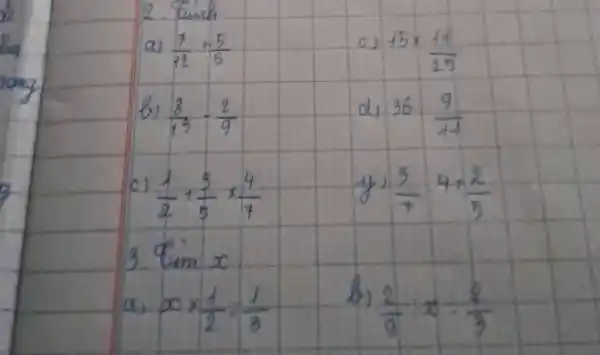 2. Tính
a) 7/12 + 5/6 c) 15 × 11/25
b) 8/13 - 2/9 d) 36 : 9/11
c) 1/2 + 3/5 × 4/7 y) 3/7 : 4 + 2/5
3. Tìm x
a) x × 1/2 = 1/3 b) 2/9 : x = 2/3